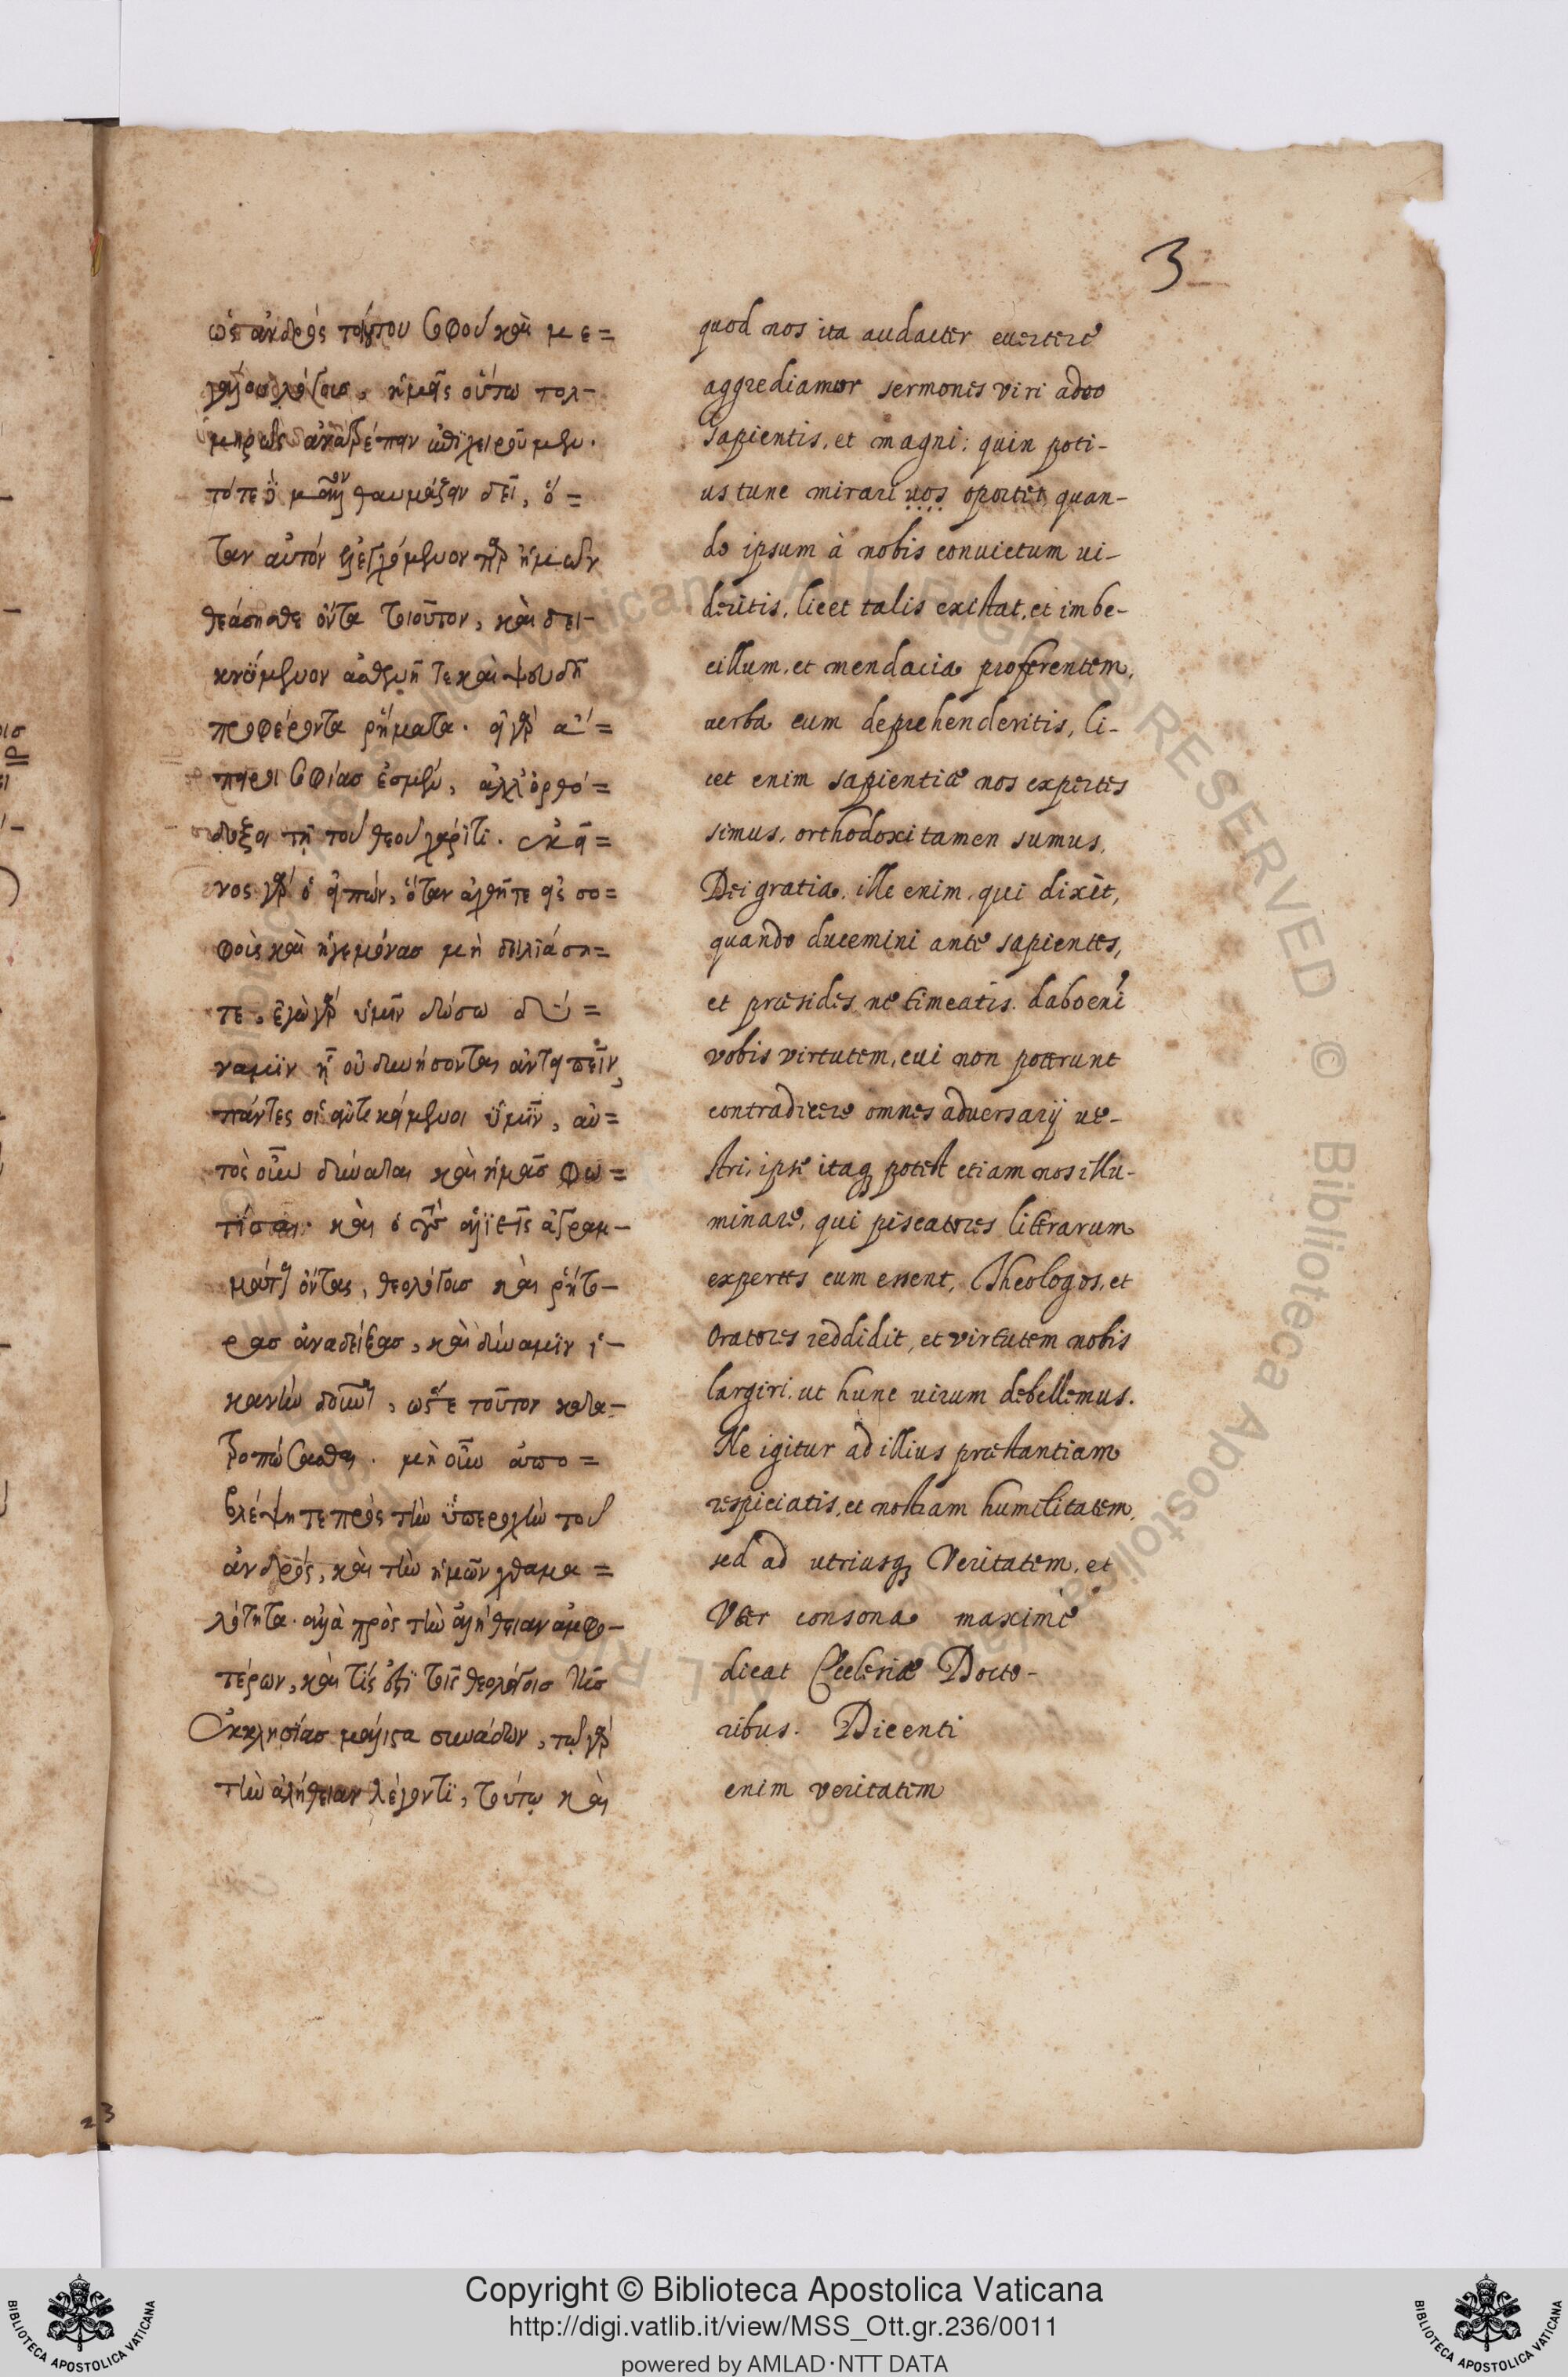 3
ὡς ἀνδρὸς τοιούτου σοφοῦ καὶ με=
γάλου λόγους, ἡμᾶς οὕτω τολ-
μηρῶς ἀνατρέπειν ἐπιχειροῦμεν.
τότε δὲ μᾶλλον θαυμάζειν δεῖ, ὅ=
ταν αὐτὸν ἐξελεγχόμενον παρ ἡμῶν
θεάσησθε ὄντα τοιοῦτον, καὶ δει-
κνύμενον ἀσθενῆ τε καὶ ψευδῆ
προφέροντα ῥήματα. εἰ γὰρ ἄ=
πειροι σοφίας ἐσμέν, ἀλλ' ὀρθό=
δοξοι τῇ τοῦ θεοῦ χάριτι. ἐκεῖ=
νος γὰρ ὁ εἰπών, ὅταν ἀχθῆτε εἰς σο=
φοὺς καὶ ἡγεμόνας μὴ δειλιάση=
τε, ἐγὼ γὰρ ὑμῖν δώσω δύ=
ναμιν ᾗ οὐ δυνήσονται ἀντειπεῖν,
πάντες οἱ ἀντικείμενοι ὑμῖν, αὐ=
τὸς οὖν δύναται καὶ ἡμᾶς φω=
τίσαι. καὶ ὁ τοὺς ἁλιεῖς ἀγραμ-
μάτους ὄντας, θεολόγους καὶ ῥήτο-
ρας ἀναδείξας, καὶ δύναμιν ἱ-
κανὴν δοῦναι, ὥστε τοῦτον κατα-
τροπώσασθαι. μὴ οὖν ἀπο=
βλέψητε πρὸς τὴν ὑπεροχὴν τοῦ
ἀνδρός, καὶ τὴν ἡμῶν χθαμα=
λότητα. ἀλλὰ πρὸς τὴν ἀλήθειαν ἀμφο-
τέρων, καὶ τίς ἐστὶ τοῖς θεολόγοις τῆς
ἐκκλησίας μάλιστα συνάδων, τῷ γὰρ
τὴν ἀλήθειαν λέγοντι, τούτῳ καὶ
quod nos ita audacter euertere
aggrediamur sermones viri adeo
sapientis, et magni: quin poti-
us tunc mirari uos oportet, quan-
do ipsum à nobis conuictum ui-
deritis, licet talis existat, et imbe-
cillum, et mendacia proferentem,
uerba eum deprehenderitis, li-
cet enim sapientiæ nos expertes
simus, orthodoxi tamen sumus,
Dei gratia. ille enim, qui dixit,
quando ducemini ante sapientes,
et præsides ne timeatis. dabo eni
vobis virtutem, cui non poterunt
contradicere omnes aduersarij ue-
stri, ipse itaq potest etiam nos illu-
minare, qui piscatores literarum
expertes cum essent, Theologos, et
Oratores reddidit, et virtutem nobis
largiri, ut hunc uirum debellemus.
Ne igitur ad illius præstantiam
respiciatis, et nostram humilitatem,
sed ad utriusq Veritatem, et
Vter consona maximè
dicat Ecclesiæ Docto-
ribus. Dicenti
enim veritatem
23
Copyright © Biblioteca Apostolica Vaticana
http://digi.vatlib.it/view/MSS_Ott.gr.236/0011
powered by AMLAD·NTT DATA